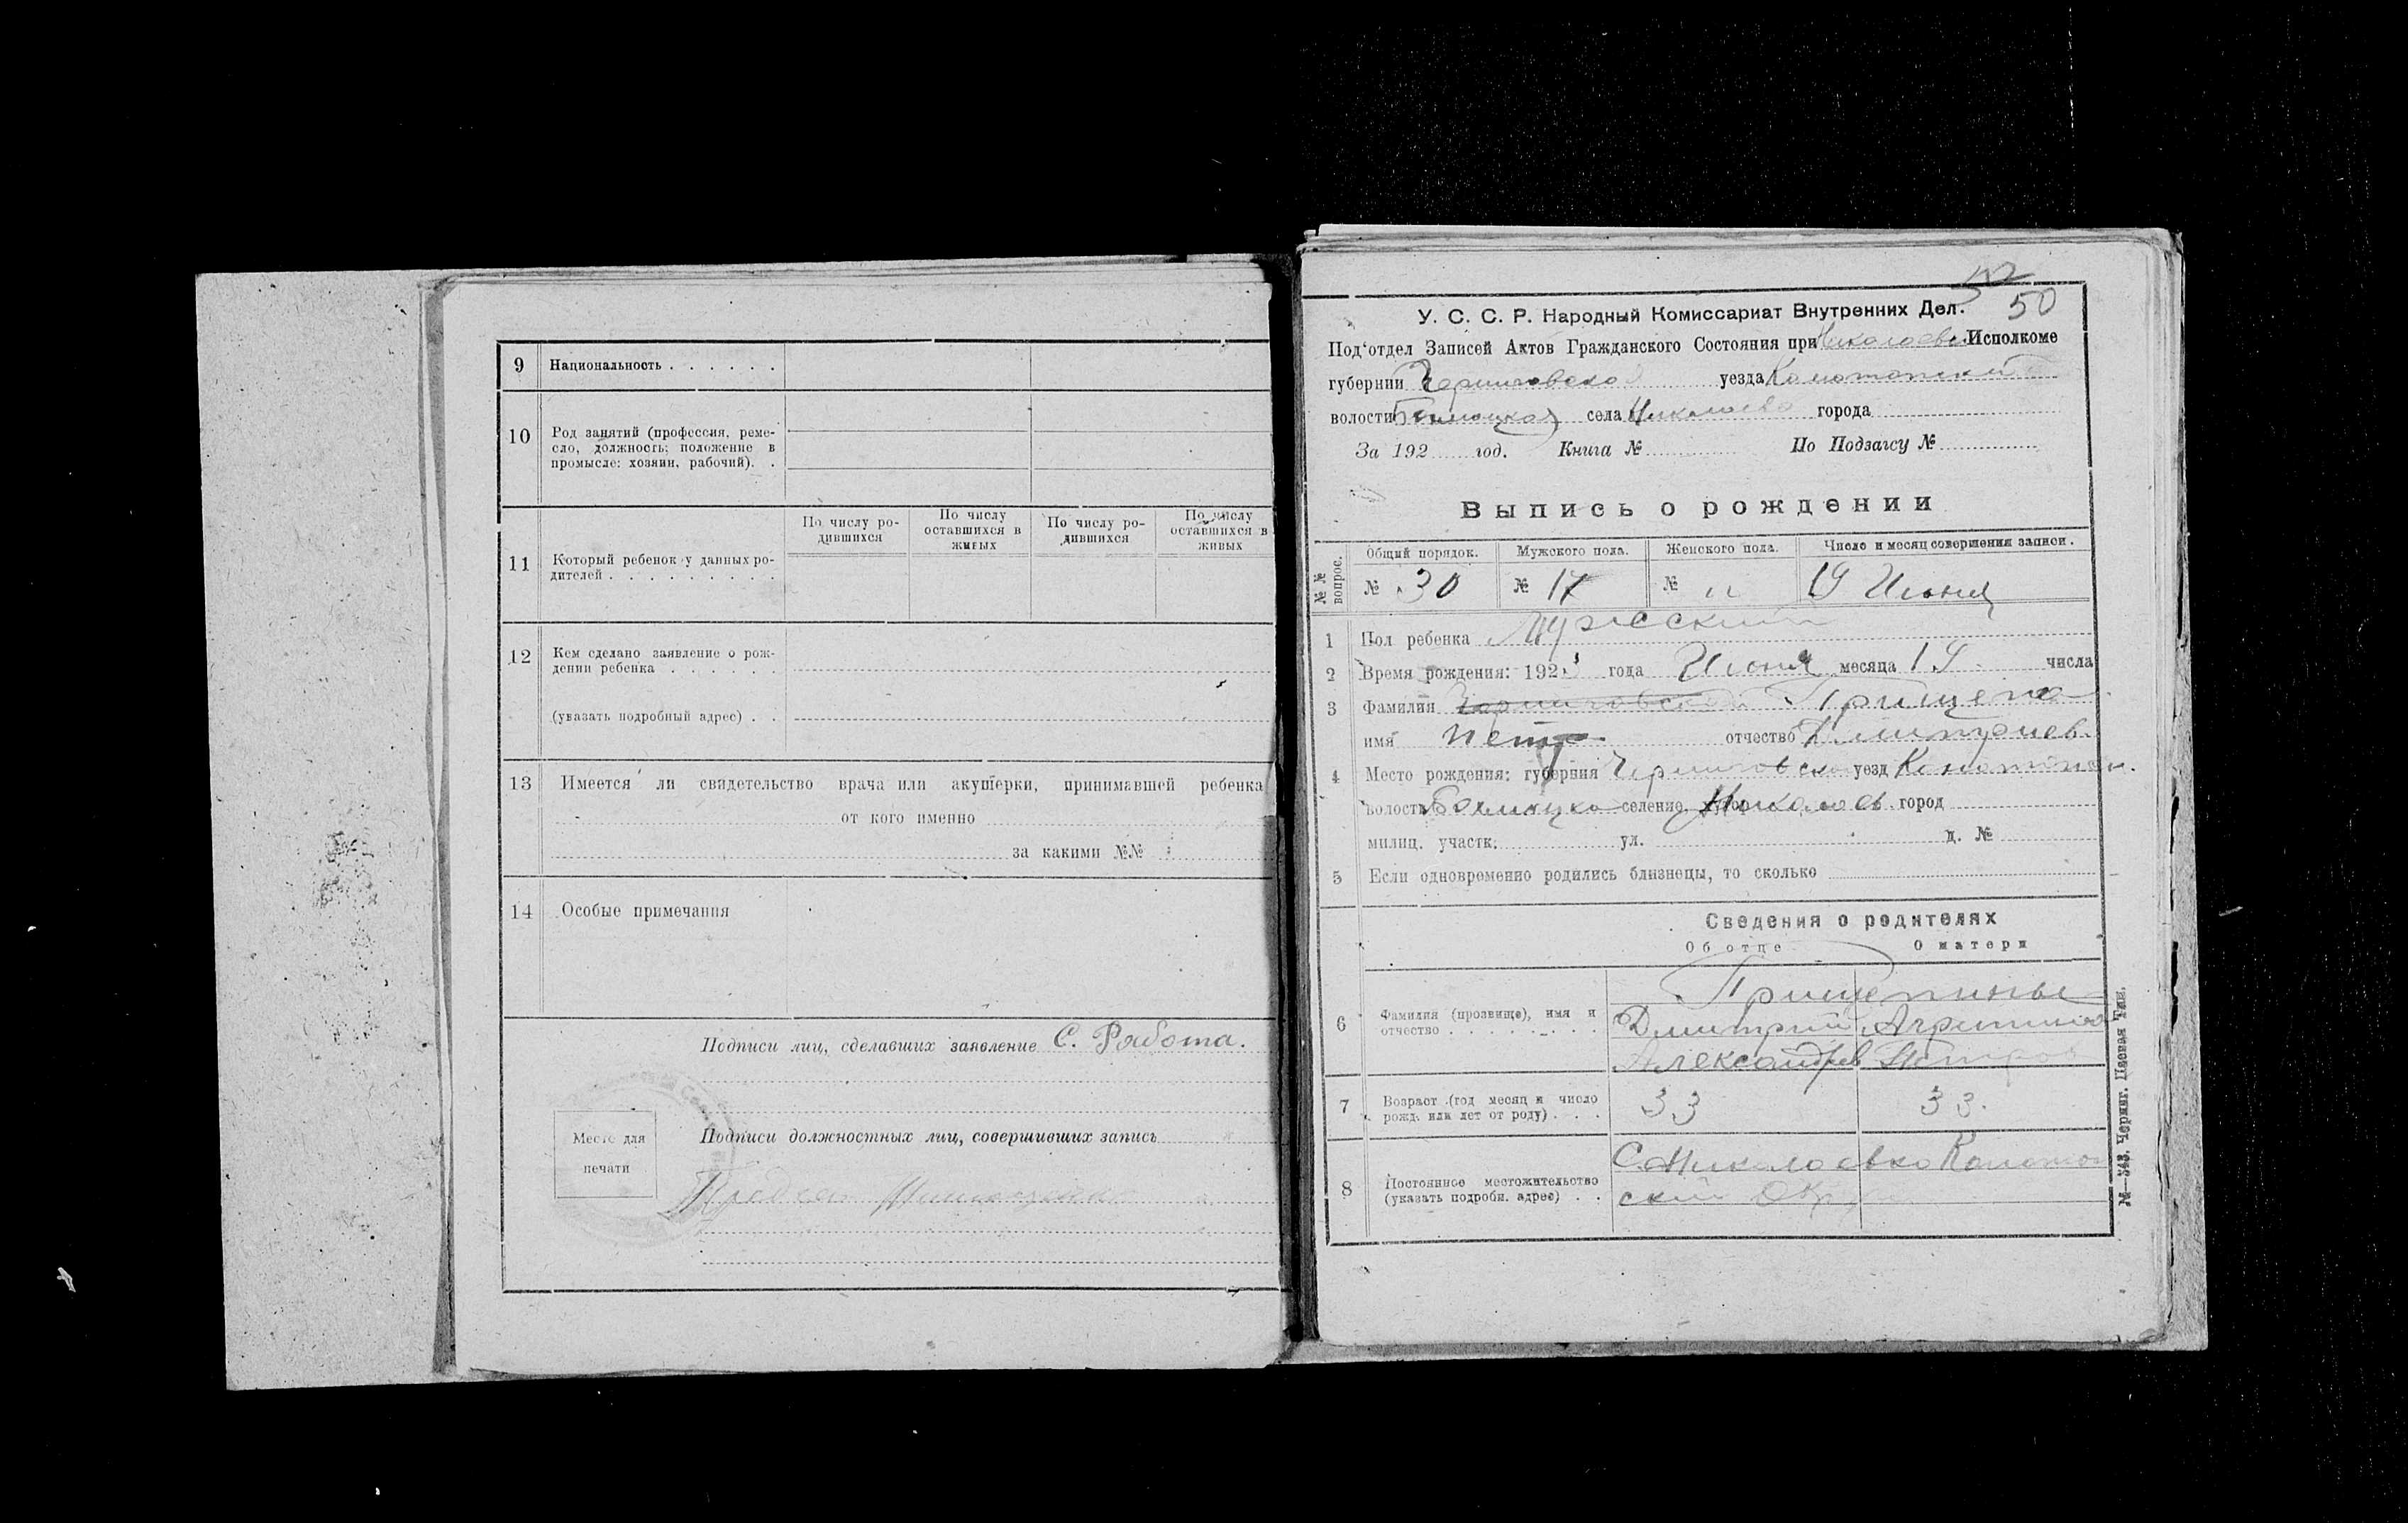 9 Национальность . . . . . .
10 Род занятий (профессия, реме-
сло, должность; положение в
промысле: хозяин, рабочий). .
По числу ро-
дившихся
По числу
оставшихся в
живых
По числу ро-
дившихся
По числу
оставшихся в
живых
11 Который ребенок у данных ро-
дителей . . . . . . . . .
12 Кем сделано заявление о рож-
дении ребенка . . . . . .
(указать подробный адрес) . .
13 Имеется ли свидетельство врача или акушерки, принимавшей ребенка
от кого именно
за какими №№
14 Особые примечания
Подписи лиц, сделавших заявление С. Работа.
Место для
печати
Подписи должностных лиц, совершивших запись
52
50
У. С. С. Р. Народный Комиссариат Внутренних Дел.
Под'отдел Записей Актов Гражданского Состояния при Николаевск Исполкоме
губернии Черниговской уезда Конотопский
волости села Николаевка города
За 192 год. Книга № По Подзагсу №
Выпись о рождении
№№ вопрос.
Общий порядок. Мужского пола. Женского пола. Число и месяц совершения записи.
№ 30 № 17 № „ 19 Июня
1 Пол ребенка Мужеский
2 Время рождения: 1923 года Июня месяца 19 числа
3 Фамилия Черниговской Прищепа
имя Петр отчество Дмитриев.
4 Место рождения: губерния Черниговской уезд Конотопск.
волость Бахмацко селение Николаев город
милиц. участк. ул. д. №
5 Если одновременно родились близнецы, то сколько
Сведения о родителях
Об отце О матери
Прищепины
6 Фамилия (прозвище), имя и
отчество . . . . . . . .
Дмитрий Агрипина
Александров Петров
7 Возраст (год месяц и число
рожд. или лет от роду) . . .
33 33.
8 Постоянное местожительство
(указать подробн. адрес) . .
С. Николаевка Конотоп
ский Окр
№—343. Черниг. Паевая Тип.